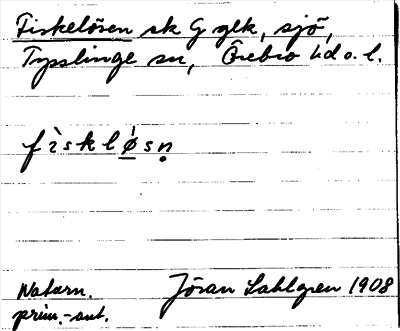 Fiskelösen sk G glk, sjö,
Tysslinge sn, Örebro hd o. l.
fìsklø̀sn̥
Naturn.
prim.-ant.
Jöran Sahlgren 1908